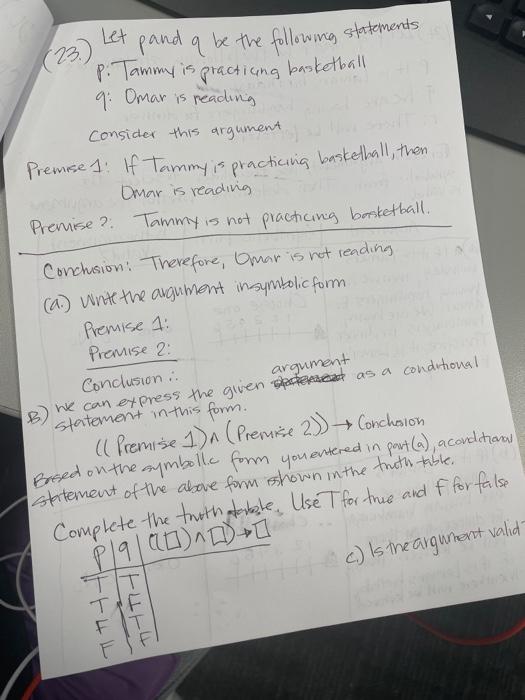 (23.) Let p and q be the following statements
p: Tammy is practicing basketball
q: Omar is reading
Consider this argument
Premise 1: If Tammy is practicing basketball, then
Omar is reading
Premise 2: Tammy is not practicing basketball.
Conclusion: Therefore, Omar is not reading
(a) Write the argument in symbolic form
Premise 1:
Premise 2:
Conclusion ∴:
B) We can express the given argument as a conditional
statement in this form.
((Premise 1) ∧ (Premise 2)) → Conclusion
Based on the symbolic form you entered in part (a), a conditional
statement of the above form shown in the truth table.
Complete the truth table. Use T for true and F for false
p | q | ((□) ∧ □) → □
T | T
T | F
F | T
F | F
c) Is the argument valid?